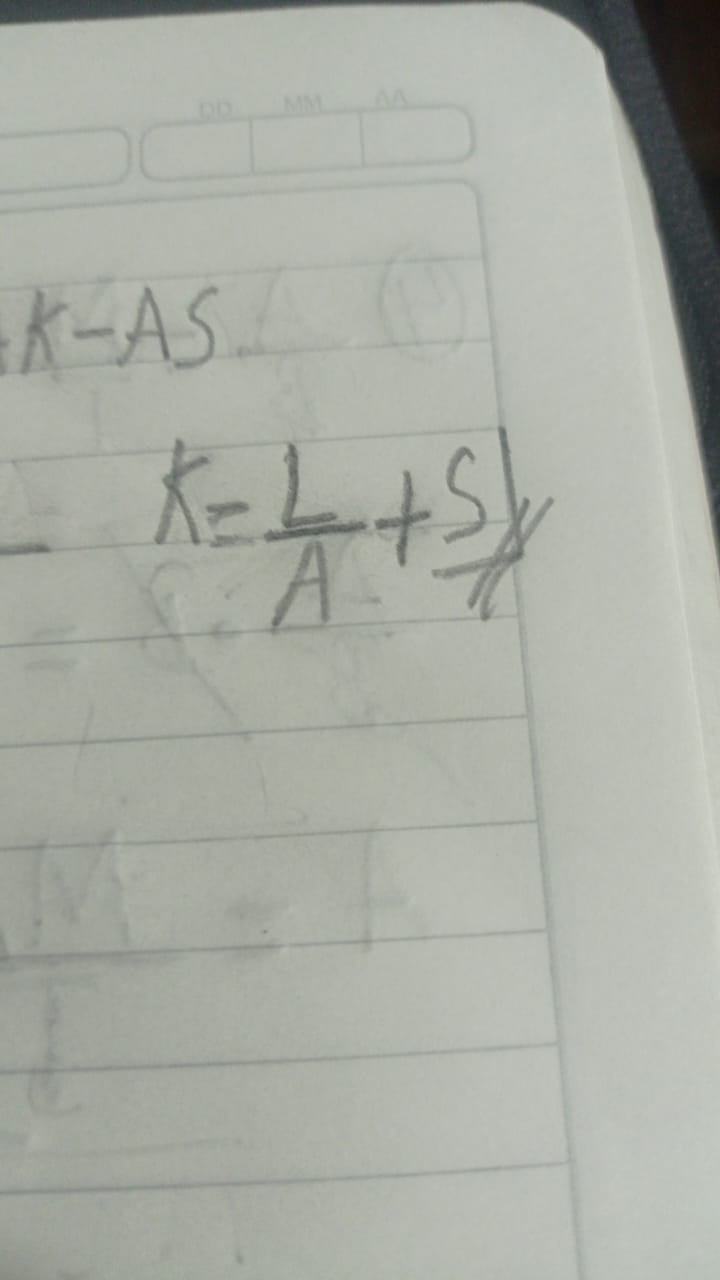 DD MM AA
K-AS
K= L/A + S